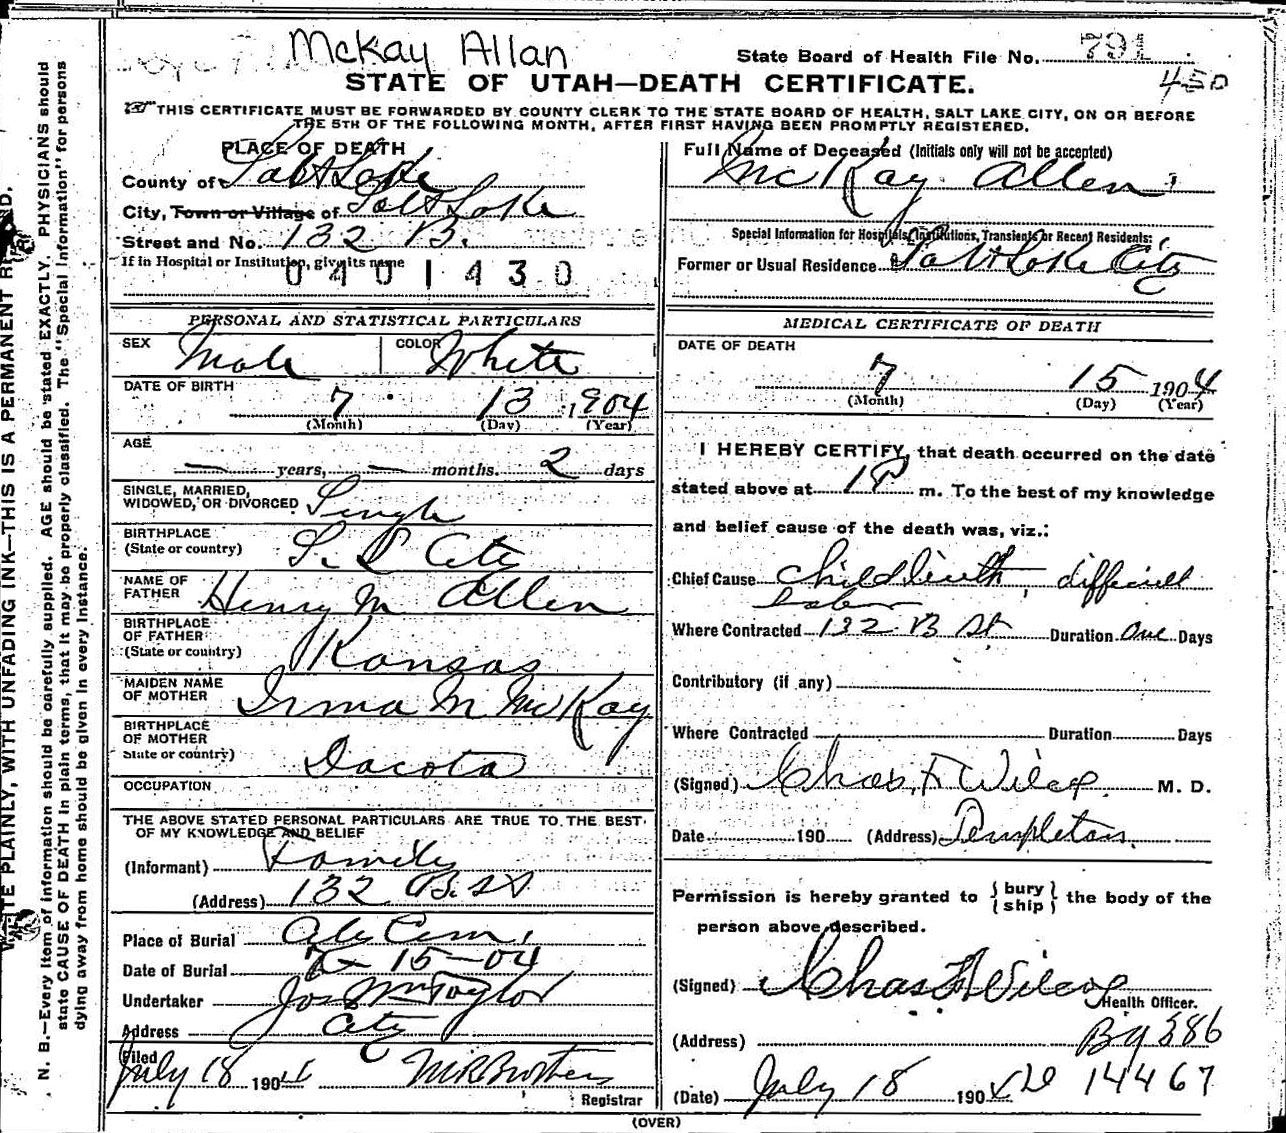 McKay Allan
State Board of Health File No. 791
450
STATE OF UTAH—DEATH CERTIFICATE.
THIS CERTIFICATE MUST BE FORWARDED BY COUNTY CLERK TO THE STATE BOARD OF HEALTH, SALT LAKE CITY, ON OR BEFORE
THE 5TH OF THE FOLLOWING MONTH, AFTER FIRST HAVING BEEN PROMPTLY REGISTERED.
PLACE OF DEATH
County of Salt Lake
City, Town or Village of Salt Lake
Street and No. 132 B.
If in Hospital or Institution, give its name
0401430
PERSONAL AND STATISTICAL PARTICULARS
SEX Male COLOR White
DATE OF BIRTH
7 13 1904
(Month) (Day) (Year)
AGE
— years, — months. 2 days
SINGLE, MARRIED,
WIDOWED, OR DIVORCED Single
BIRTHPLACE
(State or country) S. L City
NAME OF
FATHER Henry M Allen
BIRTHPLACE
OF FATHER
(State or country) Kansas
MAIDEN NAME
OF MOTHER Irma M McKay
BIRTHPLACE
OF MOTHER
State or country) Dacota
OCCUPATION
THE ABOVE STATED PERSONAL PARTICULARS ARE TRUE TO THE BEST
OF MY KNOWLEDGE AND BELIEF
(Informant) Family
(Address) 132 B. St
Place of Burial City Cem.
Date of Burial 7-15-04
Undertaker Jos Wm Taylor
Address City
Filed
July 18 1904 Registrar
Full Name of Deceased (Initials only will not be accepted)
McKay Allen
Special Information for Hospitals, Institutions, Transients or Recent Residents:
Former or Usual Residence Salt Lake City
MEDICAL CERTIFICATE OF DEATH
DATE OF DEATH
7 15 1904
(Month) (Day) (Year)
I HEREBY CERTIFY, that death occurred on the date
stated above at 1 P m. To the best of my knowledge
and belief cause of the death was, viz.:
Chief Cause Childbirth, difficult
labor
Where Contracted 132 B St Duration One Days
Contributory (if any)
Where Contracted Duration Days
(Signed) Chas. F Wilcox M. D.
Date 190 (Address) Templeton.
Permission is hereby granted to { bury / ship } the body of the
person above described.
(Signed) Chas F Wilcox
Health Officer.
(Address)
(Date) July 18 190 14467
(OVER)
WRITE PLAINLY, WITH UNFADING INK—THIS IS A PERMANENT RECORD.
N. B.—Every item of information should be carefully supplied. AGE should be stated EXACTLY. PHYSICIANS should
state CAUSE OF DEATH in plain terms, that it may be properly classified. The "Special Information" for persons
dying away from home should be given in every instance.